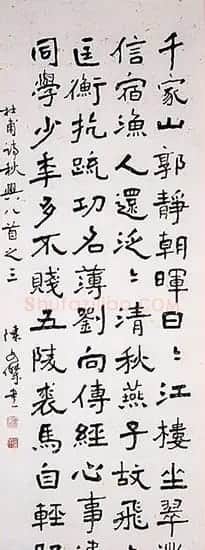 千家山郭靜朝暉日〻江樓坐翠
信宿漁人還泛〻清秋燕子故飛
匡衡抗疏功名薄劉向傳經心事違
同學少年多不賤五陵裘馬自輕
杜甫詩秋興八首之三